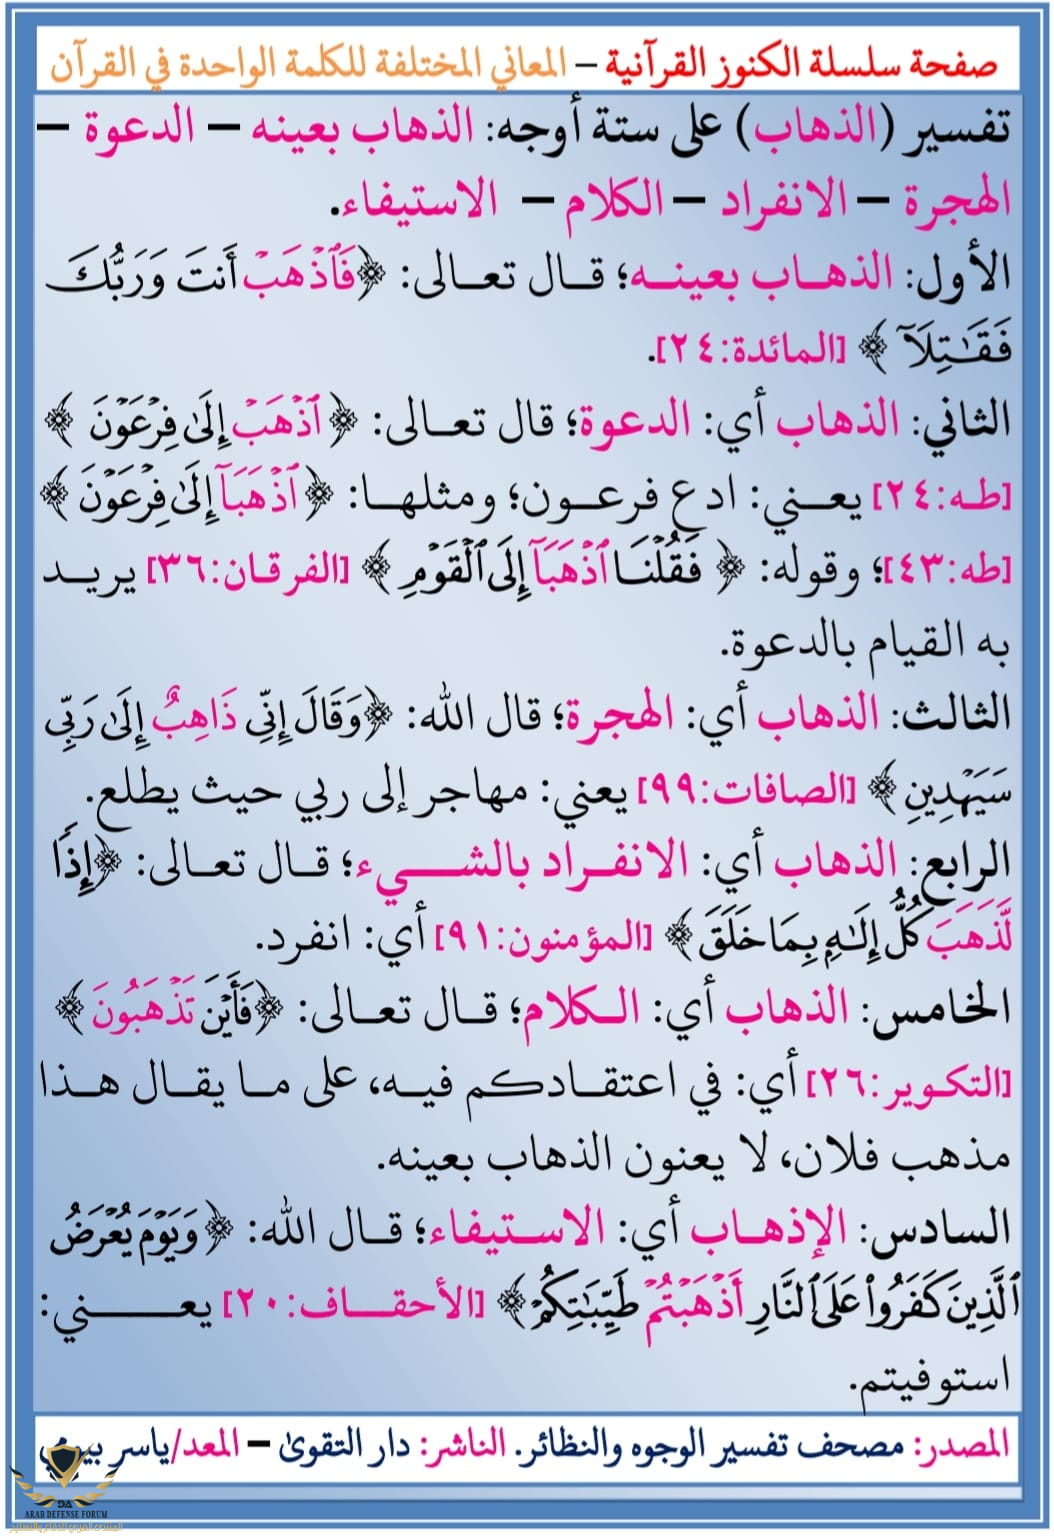 صفحة سلسلة الكنوز القرآنية – المعاني المختلفة للكلمة الواحدة في القرآن
تفسير (الذهاب) على ستة أوجه: الذهاب بعينه – الدعوة –
الهجرة – الانفراد – الكلام – الاستيفاء.
الأول: الذهاب بعينه؛ قال تعالى: ﴿فَٱذۡهَبۡ أَنتَ وَرَبُّكَ
فَقَٰتِلَآ ﴾ [المائدة:٢٤].
الثاني: الذهاب أي: الدعوة؛ قال تعالى: ﴿ ٱذۡهَبۡ إِلَىٰ فِرۡعَوۡنَ ﴾
[طه:٢٤] يعني: ادع فرعون؛ ومثلها: ﴿ ٱذۡهَبَآ إِلَىٰ فِرۡعَوۡنَ ﴾
[طه:٤٣]؛ وقوله: ﴿ فَقُلۡنَا ٱذۡهَبَآ إِلَى ٱلۡقَوۡمِ ﴾ [الفرقان:٣٦] يريد
به القيام بالدعوة.
الثالث: الذهاب أي: الهجرة؛ قال الله: ﴿وَقَالَ إِنِّي ذَاهِبٌ إِلَىٰ رَبِّي
سَيَهۡدِينِ ﴾ [الصافات:٩٩] يعني: مهاجر إلى ربي حيث يطلع.
الرابع: الذهاب أي: الانفراد بالشيء؛ قال تعالى: ﴿إِذٗا
لَّذَهَبَ كُلُّ إِلَٰهِۭ بِمَا خَلَقَ ﴾ [المؤمنون:٩١] أي: انفرد.
الخامس: الذهاب أي: الكلام؛ قال تعالى: ﴿فَأَيۡنَ تَذۡهَبُونَ ﴾
[التكوير:٢٦] أي: في اعتقادكم فيه، على ما يقال هذا
مذهب فلان، لا يعنون الذهاب بعينه.
السادس: الإذهاب أي: الاستيفاء؛ قال الله: ﴿وَيَوۡمَ يُعۡرَضُ
ٱلَّذِينَ كَفَرُواْ عَلَى ٱلنَّارِ أَذۡهَبۡتُمۡ طَيِّبَٰتِكُمۡ﴾ [الأحقاف:٢٠] يعني:
استوفيتم.
المصدر: مصحف تفسير الوجوه والنظائر. الناشر: دار التقوى – المعد/ياسر
ARAB DEFENSE FORUM
المنتدى العربي للدفاع والتسليح